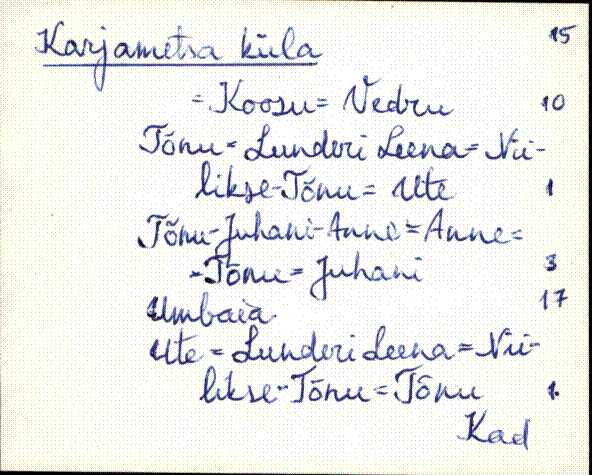 Karjametsa küla 15
= Koosu = Vedru 10
Tõnu = Lunderi Leena = Nii-
likse-Tõnu = Ute 1
Tõnu-Juhani-Anne = Anne =
= Tõnu = Juhani 3
Umbaia 17
Ute = Lunderi Leena = Nii-
likse-Tõnu = Tõnu 1.
Kad